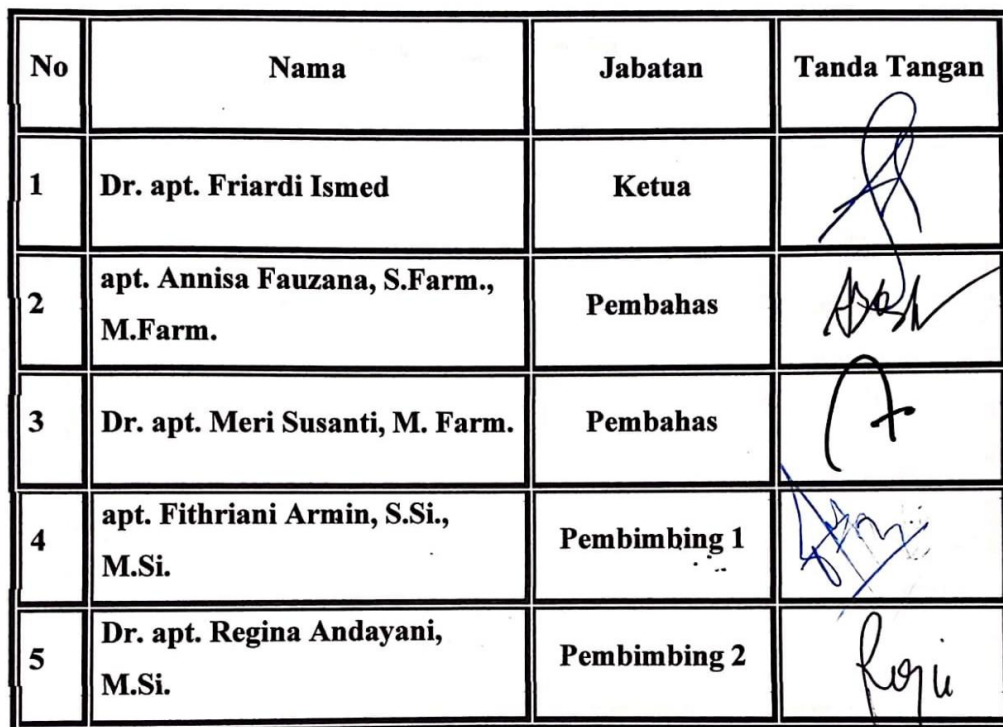 No Nama Jabatan Tanda Tangan
1 Dr. apt. Friardi Ismed Ketua
2 apt. Annisa Fauzana, S.Farm., Pembahas
M.Farm.
3 Dr. apt. Meri Susanti, M. Farm. Pembahas
4 apt. Fithriani Armin, S.Si., Pembimbing 1
M.Si.
5 Dr. apt. Regina Andayani, Pembimbing 2
M.Si.